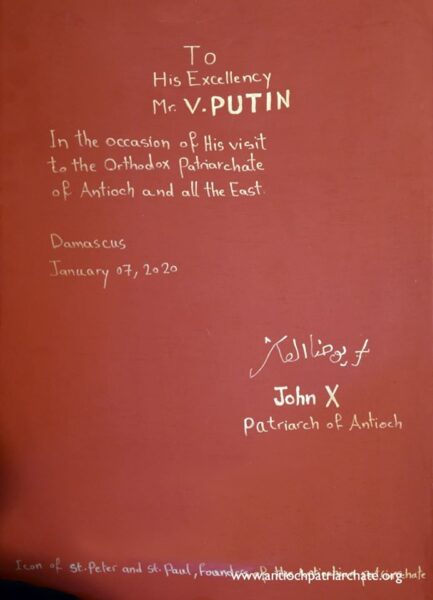 To
His Excellency
Mr. V. PUTIN
In the occasion of His visit
to the Orthodox Patriarchate
of Antioch and all the East.
Damascus
January 07, 2020
يوحنا العاشر
John X
Patriarch of Antioch
Icon of St. Peter and St. Paul, Founders of the Antiochian patriarchate
www.antiochpatriarchate.org